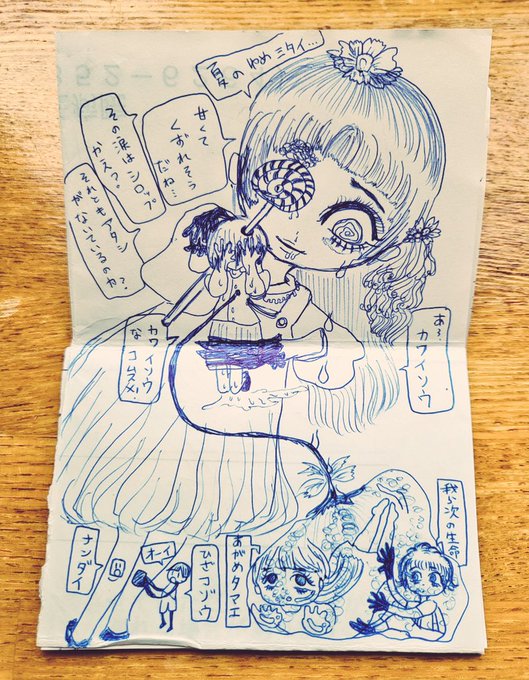 夏のゆめミタイ…
甘くて
くずれそう
だね…
その涙はシロップ
かえ?
それともアタシ
がないているのか?
カワイソウ
カワイソウ
なコムスメ!
我ら次の生命
あがめタマエ
ひざコゾウ
オーイ
ナンダイ